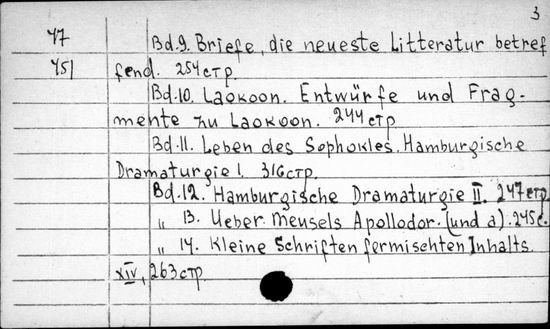 3
47 Bd.9. Briefe, die neueste Litteratur betref
451 fend. 254стр.
Bd.10. Laokoon. Entwürfe und Frag-
mente zu Laokoon. 244стр
Bd.11. Leben des Sophokles. Hamburgische
Dramaturgie I. 316стр.
Bd.12. Hamburgische Dramaturgie II. 247стр.
„ 13. Ueber Meusels Apollodor. (und a). 245с.
„ 14. Kleine Schriften fermischten Inhalts.
XIV, 263стр